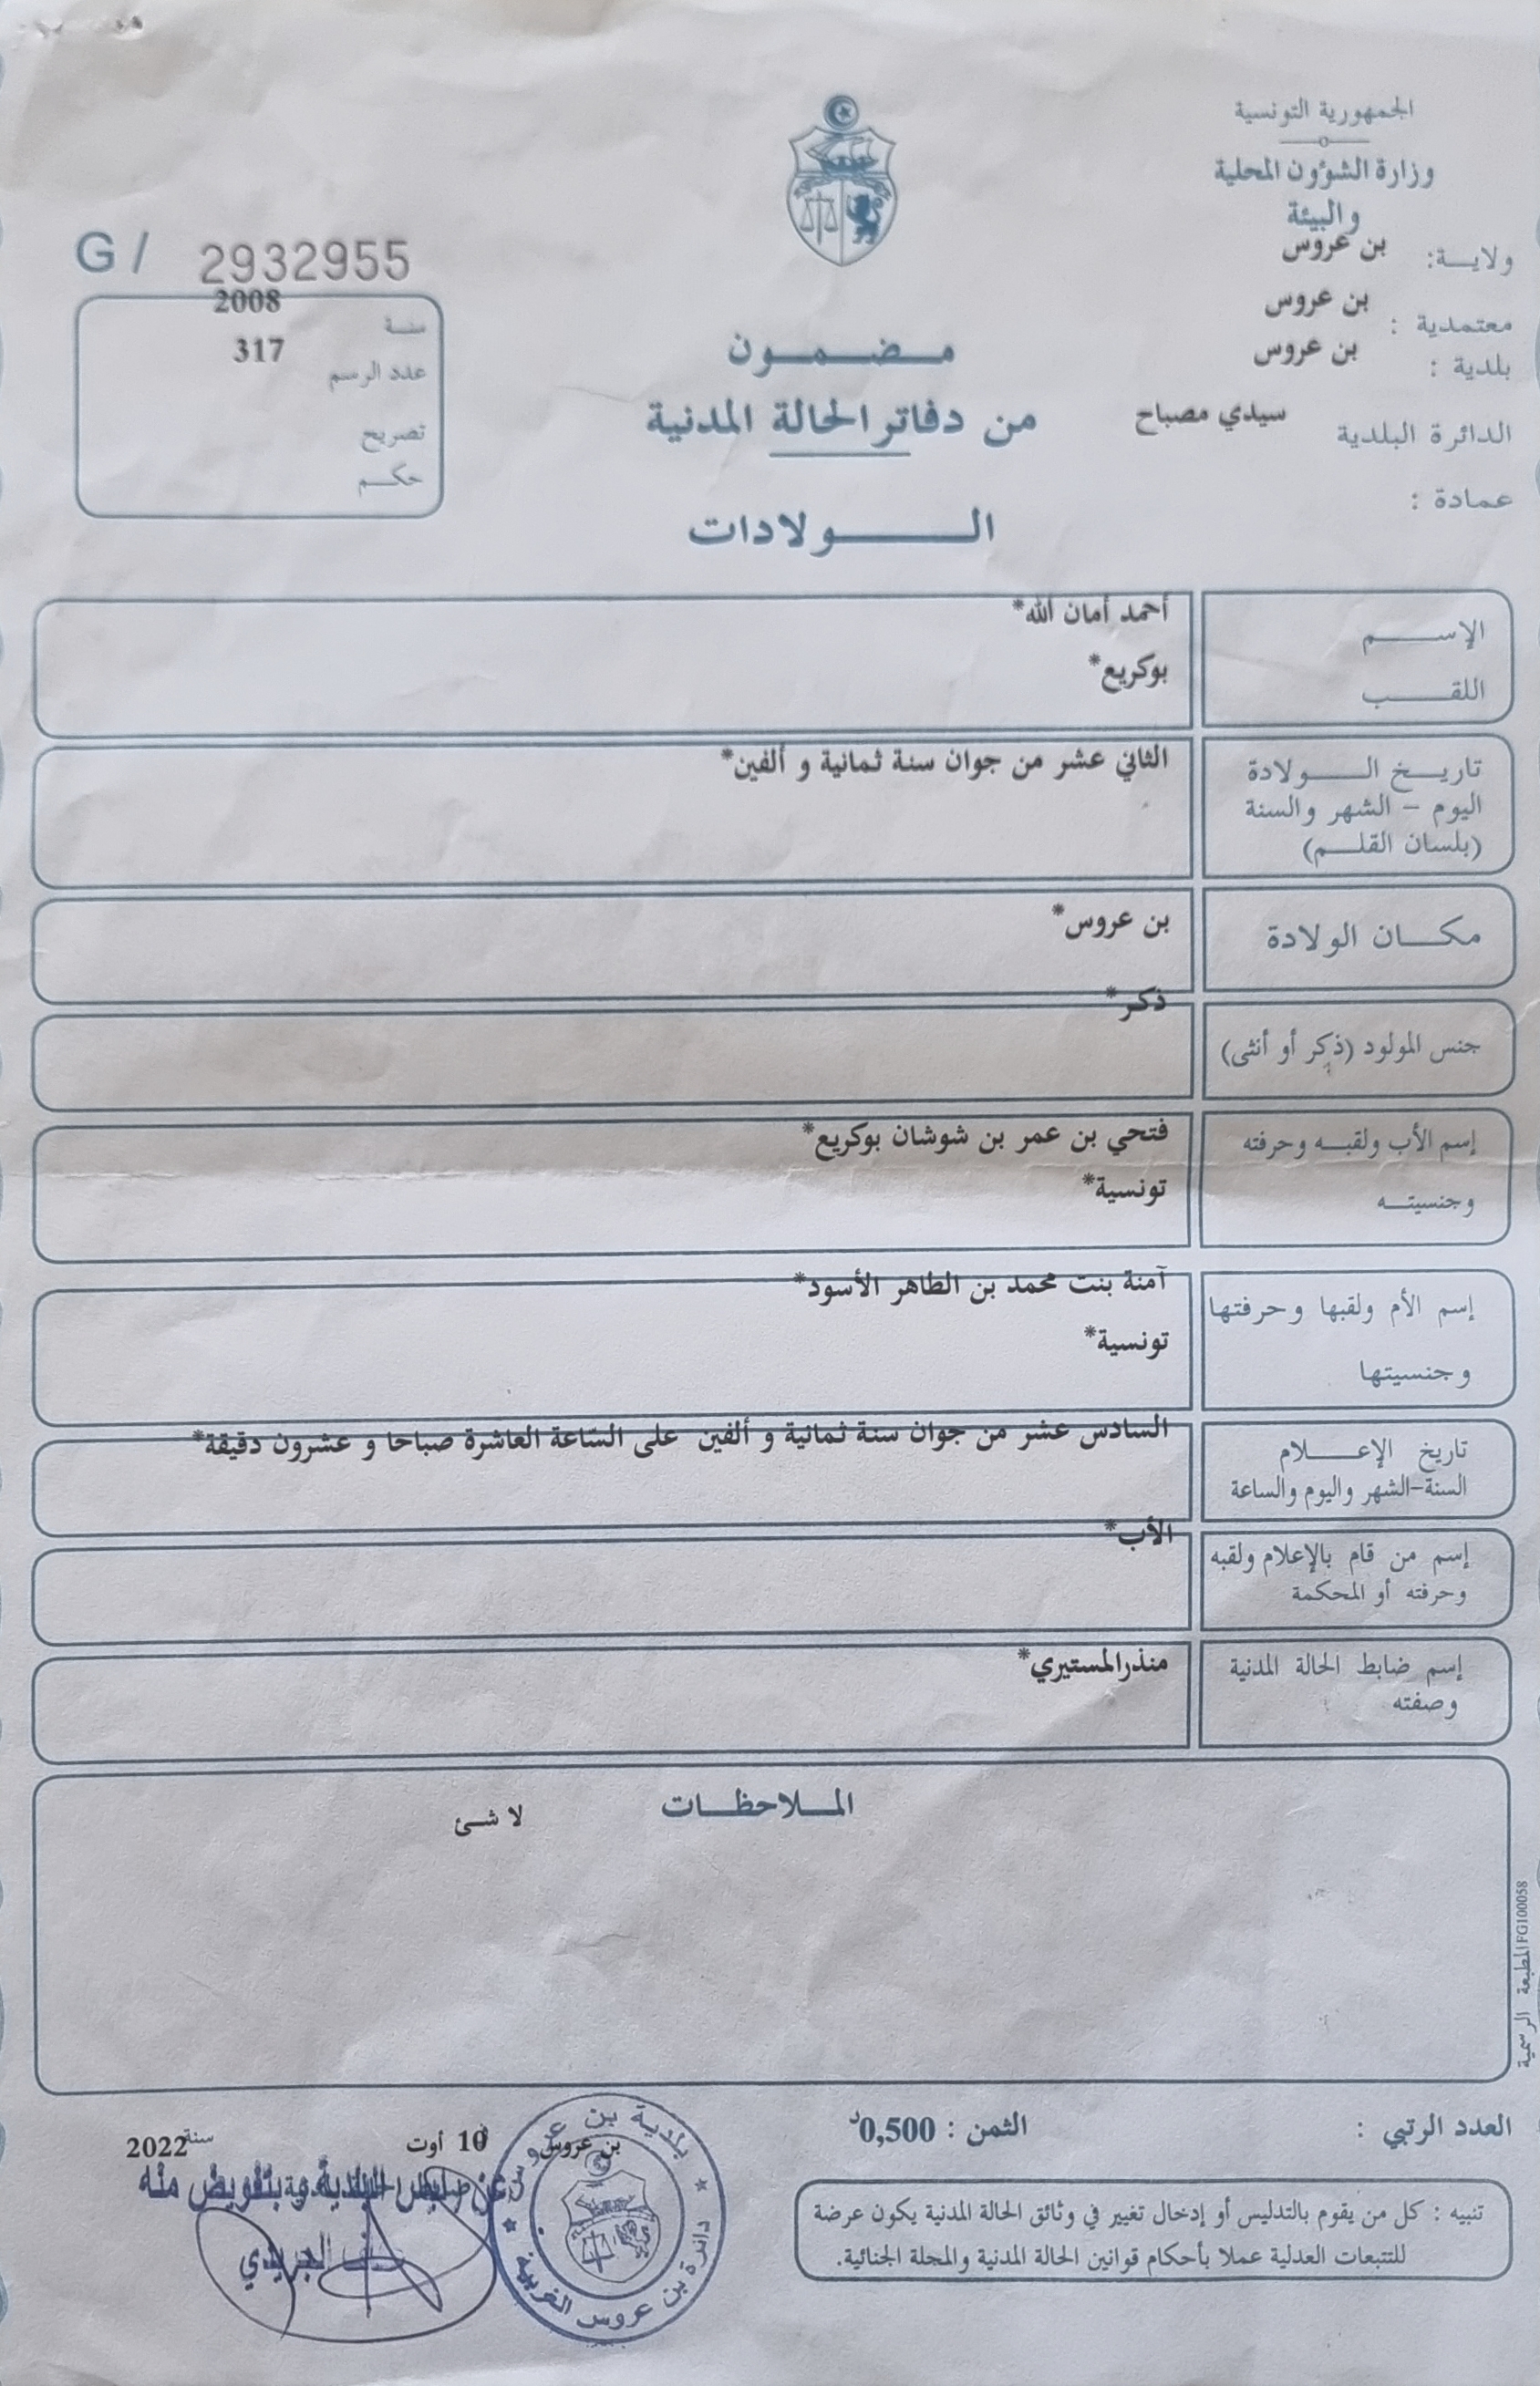 الجمهورية التونسية
وزارة الشؤون المحلية
والبيئة
ولايـــة: بن عروس
معتمدية : بن عروس
بلدية : بن عروس
الدائرة البلدية سيدي مصباح
عمادة :
G / 2932955
سنـة 2008
عدد الرسم 317
تصريح
حكـــم
مـضـمـون
من دفاتر الحالة المدنية
الــولادات
الإســـم أحمد أمان الله*
اللقـــب بوكريع*
تاريـخ الـــولادة الثاني عشر من جوان سنة ثمانية و ألفين*
اليوم – الشهر والسنة
(بلسان القلـــم)
مكـــان الولادة بن عروس*
جنس المولود (ذكر أو أنثى) ذكر*
إسم الأب ولقبـــه وحرفته فتحي بن عمر بن شوشان بوكريع*
وجنسيتـــه تونسية*
إسم الأم ولقبها وحرفتها آمنة بنت محمد بن الطاهر الأسود*
وجنسيتها تونسية*
تاريخ الإعـــلام السادس عشر من جوان سنة ثمانية و ألفين على السّاعة العاشرة صباحا و عشرون دقيقة*
السنة-الشهر واليوم والساعة
إسم من قام بالإعلام ولقبه الأب*
وحرفته أو المحكمة
إسم ضابط الحالة المدنية منذرالمستيري*
وصفته
المـــلاحظـــات
لا شئ
المطبعة الرسمية FG100058
العدد الرتبي :
الثمن : 0,500د
بن عروس 10 أوت سنة 2022
عن رئيس البلدية و بتفويض منه
الجريدي
بلدية بن عروس
دائرة بن عروس الغربية
تنبيه : كل من يقوم بالتدليس أو إدخال تغيير في وثائق الحالة المدنية يكون عرضة
للتتبعات العدلية عملا بأحكام قوانين الحالة المدنية والمجلة الجنائية.